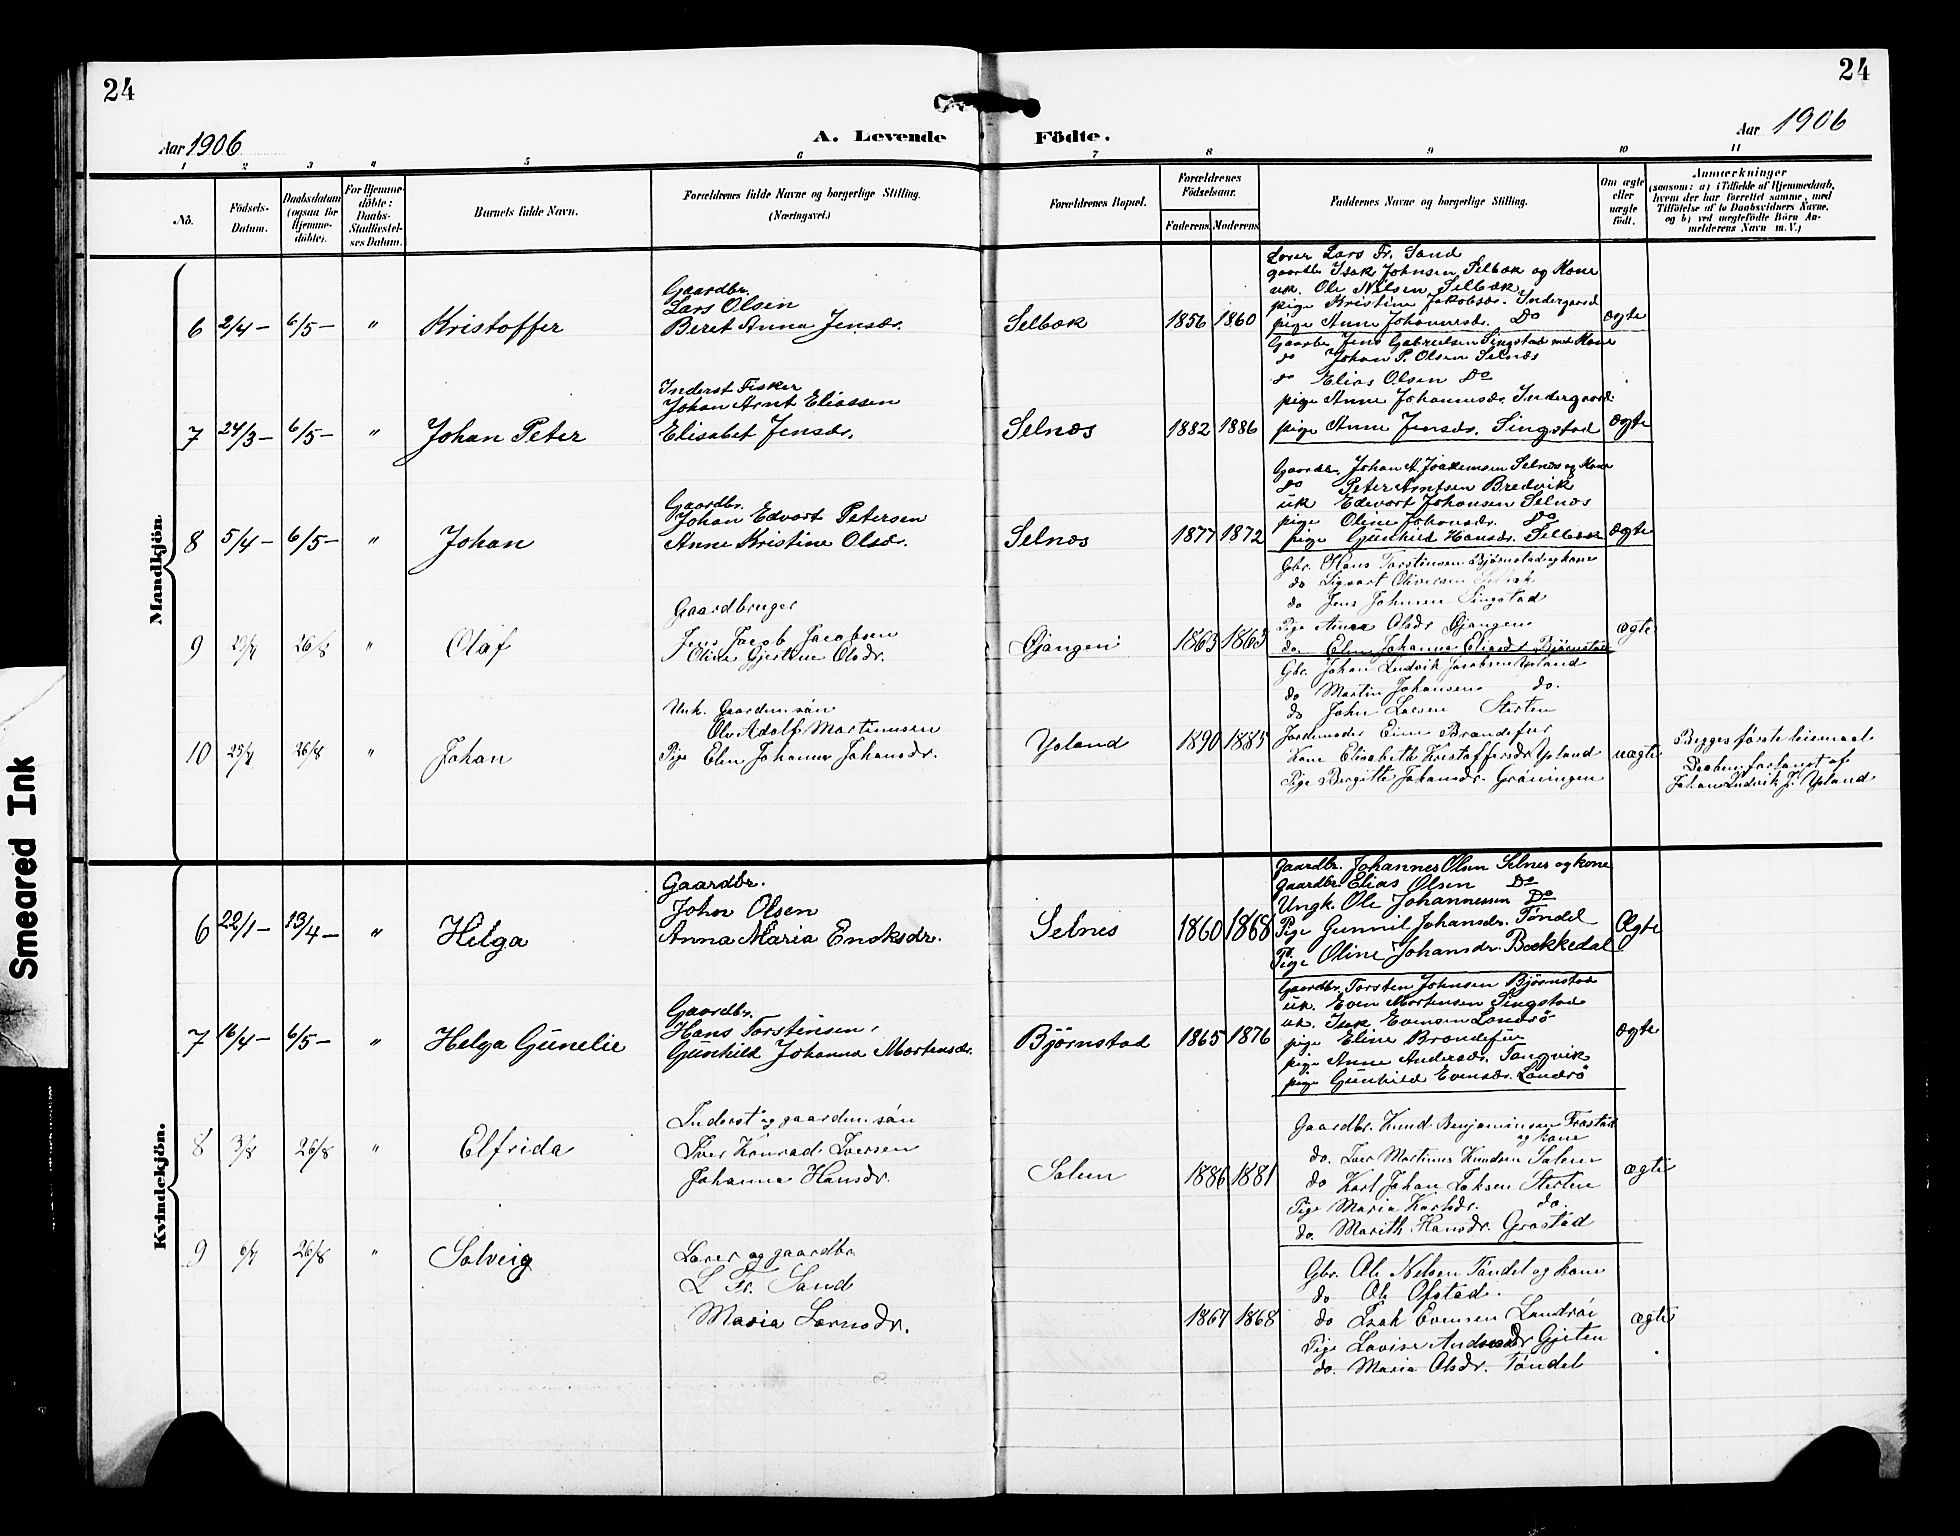 24
24
Aar 1906
A. Levende
Födte.
Aar 1906
1 2 3 4 5 6 7 8 9 10 11
No.
Födsels-
Datum.
Daabsdatum
(ogsaa for
Hjemme-
döbte).
For Hjemme-
döbte:
Daabs-
Stadfæstel-
ses Datum.
Barnets fulde Navn.
Forældrenes fulde Navne og borgerlige Stilling.
(Næringsvei.)
Forældrenes Bopæl.
Forældrenes
Födselsaar.
Faderens. Moderens
Faddernes Navne og borgerlige Stilling.
Om ægte
eller
uægte
født.
Anmærkninger
(saasom: a) i Tilfælde af Hjemmedaab,
hvem der har forrettet samme, med
Tilföielse af to Daabsvidners Navne,
og b) ved uægtefödte Börn An-
melderens Navn m. V.)
Mandkjön.
6 2/4 - 6/5 - " Kristoffer
Gaardbr.
Lars Olsen
Beret Anna Jensdr.
Selbæk 1856 1860
Lærer Lars Fr. Sand
gaardbr Isak Johnsen Selbæk og Kone
uk. Ole Nilsen Selbæk
pige Kristine Jakobsdr. Indergaard
pige Anne Johannesdr. Do
ægte
7 24/3 - 6/5 - " Johan Peter
Inderst Fisker
Johan Arnt Eliassen
Elisabet Jensdr.
Selnæs 1882 1886
Gaardbr Jens Gabrielsen Singstad med Kone
do Johan P. Olsen Selnæs
do Elias Olsen Do
pige Anne Johannesdr. Indergaard
pige Anne Jensdr. Singstad
ægte
8 5/4 - 6/5 - " Johan
Gaardbr.
Johan Edvart Petersen
Anne Kristine Olsdr.
Selnæs 1877 1872
Gaardbr. Johan A. Joakimsen Selnæs og Kone
do Peter Arntsen Bredvik
uk Edevart Johansen Selnæs
pige Oline Johansdr. Do
pige Gunhild Hansdr. Selbæk
ægte
9 29/7 26/8 " Olaf
Gaardbruger
Jens Jacob Jacobsen
Olina Gjertine Olsdr.
Øjangen 1863 1863
Gbr. Hans Torstinsen Bjørnstad og kone
do Sigvart Oliversen Selbæk
do Jens Johnsen Singstad
Pige Anna Olsdr Øjangen
do. Elen Johanna Eliasdr Bjørnstad
ægte
10 25/7 26/8 " Johan
Unk. Gaardmansøn
Ole Adolf Martinusen
Pige Elen Johanna Johansdr.
Ysland 1890 1885
Gbr. Johan Ludvik Jacobsen Ysland
do Martin Johansen do.
do John Larsen Sterten
Jordemoder Eline Brandsfur
Kone Elisabeth Kristoffersdr Ysland
Pige Bergitte Johansdr. Grøningen
uægte
Begges første leiermaal
Daaben forlangt af
Johan Ludvik J. Ysland
Kvindekjön.
6 22/1 - 13/4 - " Helga
Gaardbr.
John Olsen
Anna Maria Enoksdr.
Selnes 1860 1868
Gaardbr. Johannes Olsen Selnes og kone
Gaardbr Elias Olsen Do
Ungk. Ole Johannessen Do
Pige Gunnil Johansdr. Tøndel
Pige Oline Johansdr. Bækkedal
Ægte
7 16/4 - 6/5 - " Helga Gunelie
Gaardbr.
Hans Torstinsen,
Gunhild Johanna Mortensdr.
Bjørnstad 1865 1876
Gaardbr. Torsten Johnsen Bjørnstad
uk. Even Mortensen Singstad
uk. Isak Evensen Landrö
pige Eline Brandsfur
pige Anne Andersdr. Tangvik
pige Gunhild Evensdr. Landrö
ægte
8 3/8 26/8 " Elfrida
Inderst og gaardmansøn
Iver Konrad Iversen
Johanna Hansdr.
Salen 1886 1881
Gaardbr. Knud Benjaminsen Frøstad
og kone
do. Iver Martinus Knudsen Salen
do Karl Johan Isaksen Sterten
Pige Maria Karlsdr. do.
do. Marith Hansdr. Grøstad
ægte
9 6/7 26/8 " Solveig
Lærer og gaardbr.
L Fr. Sand
Maria Larsdr.
1867 1868
Gbr. Ole Nelsen Tøndel og kone
do Ole Ofstad.
do Isak Evensen Landrøi
Pige Lovise Andersdr Gjeten
do. Maria Olsdr. Tøndel
ægte
Smeared Ink